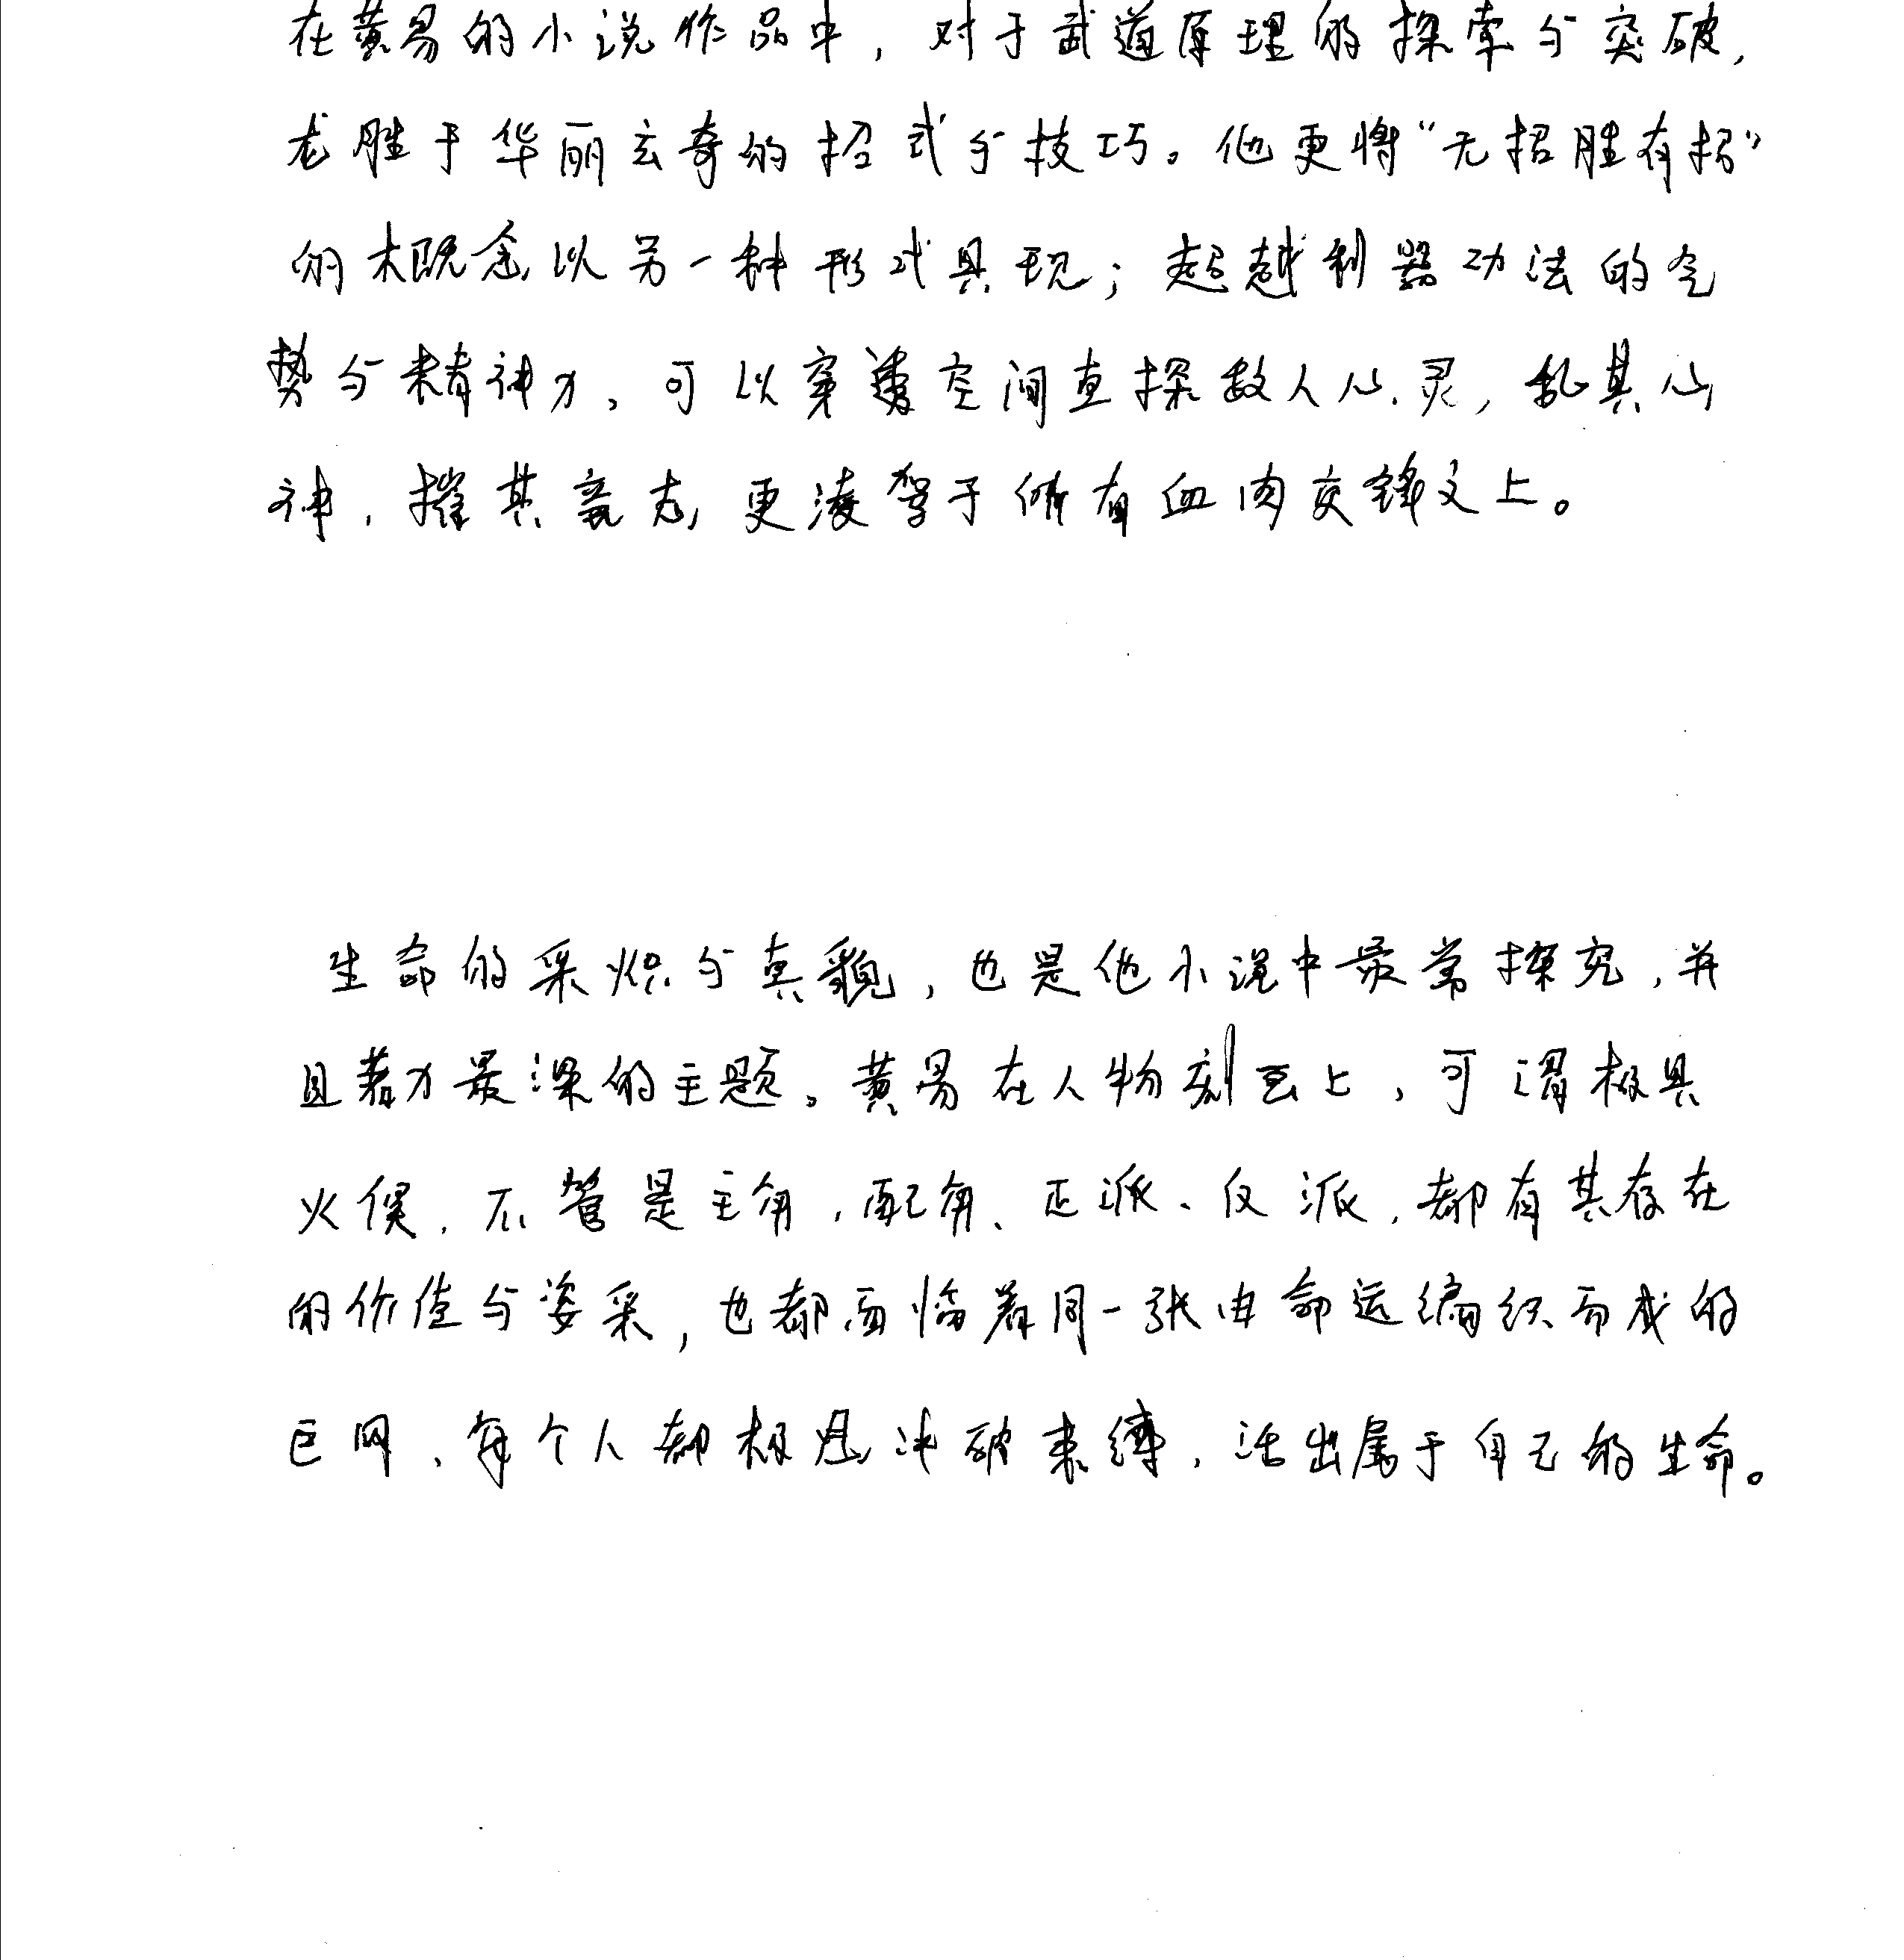 在黄易的小说作品中，对于武道原理的探索与突破，
尤胜于华丽玄奇的招式与技巧。他更将“无招胜有招”
的概念以另一种形式具现；超越利器功法的气
势与精神力，可以穿透空间直探敌人心灵，乱其心
神，摧其意志，更凌驾于所有血肉交锋之上。
生命的采炽与真貌，也是他小说中最常探究，并
且着力最深的主题。黄易在人物刻画上，可谓极具
火候，不管是主角，配角、正派、反派，都有其存在
的价值与姿采，也都面临着同一张由命运编织而成的
巨网，每个人都极思冲破束缚，活出属于自己的生命。